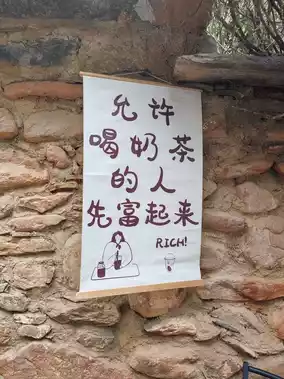 允许
喝奶茶
的人
先富起来
RICH!